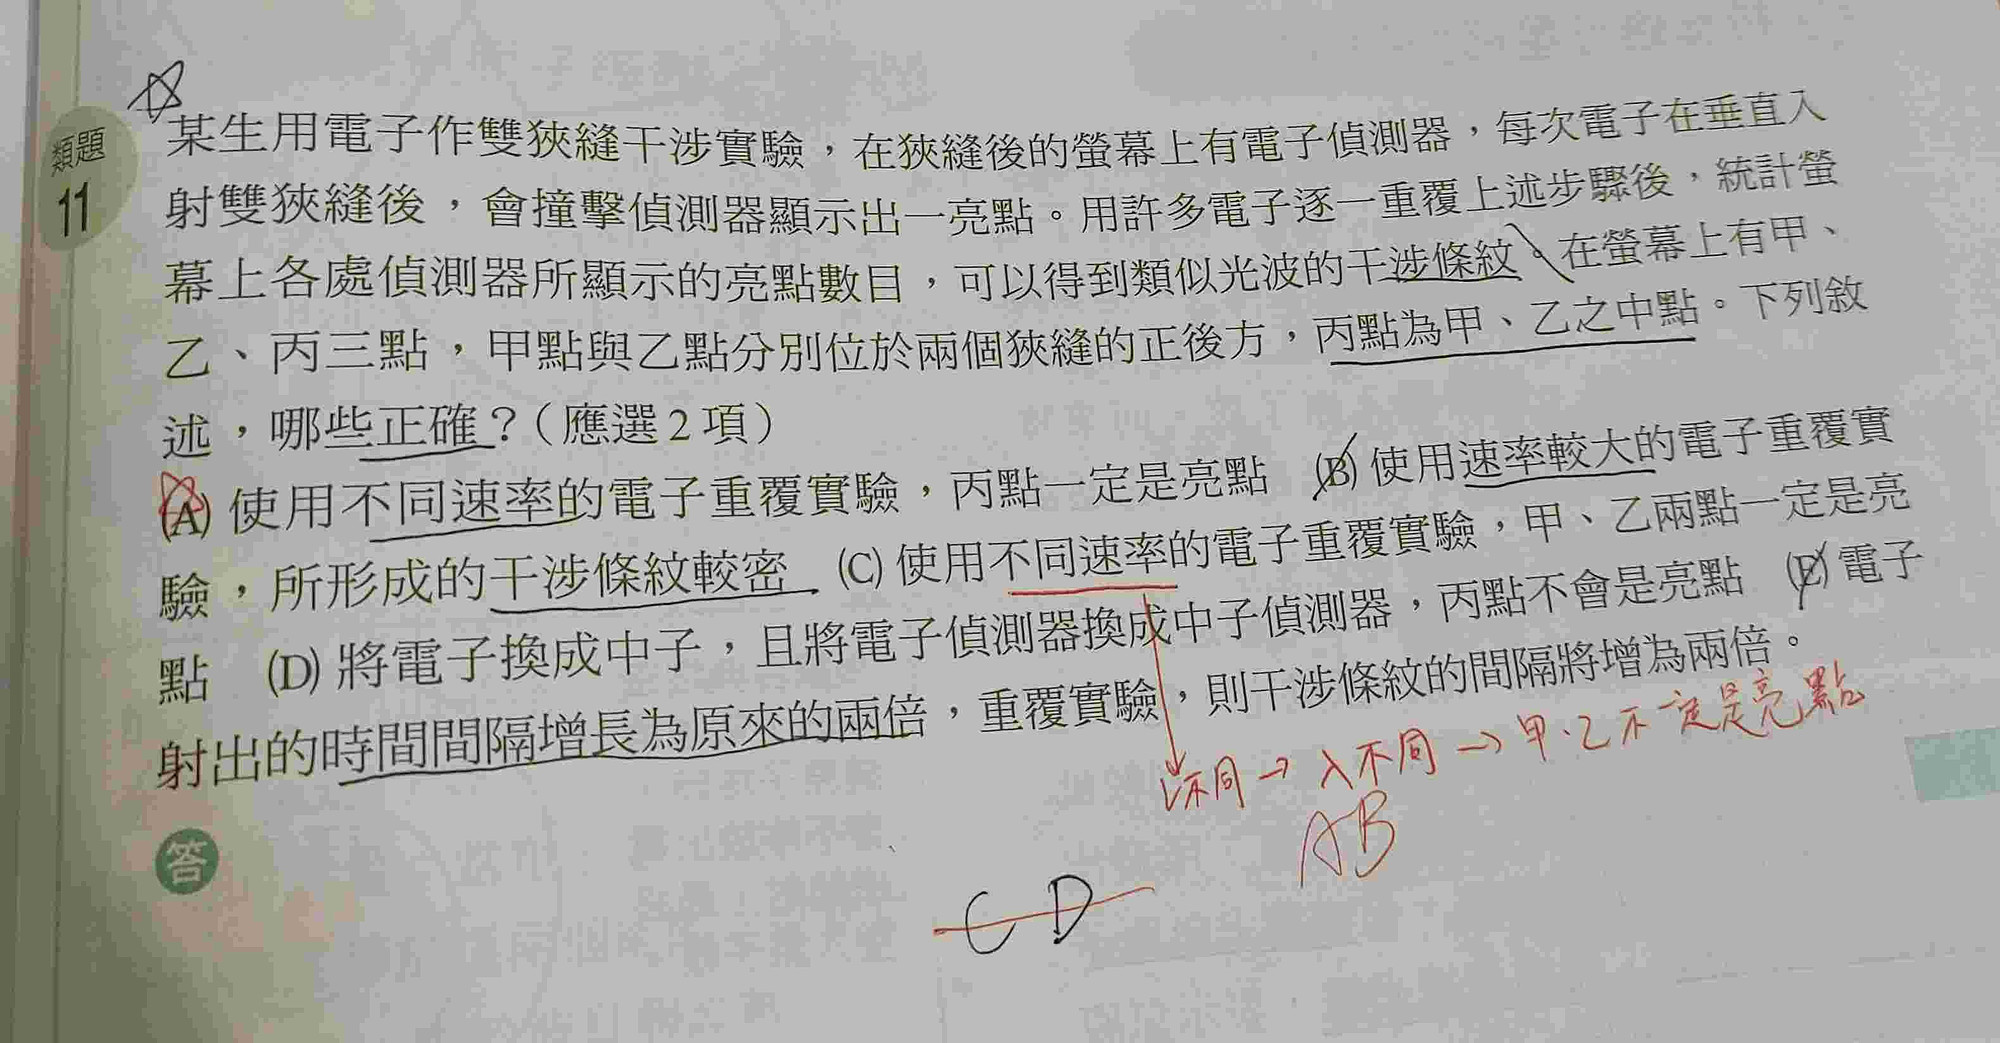 類題
11
某生用電子作雙狹縫干涉實驗，在狹縫後的螢幕上有電子偵測器，每次電子在垂直入
射雙狹縫後，會撞擊偵測器顯示出一亮點。用許多電子逐一重覆上述步驟後，統計螢
幕上各處偵測器所顯示的亮點數目，可以得到類似光波的干涉條紋。在螢幕上有甲、
乙、丙三點，甲點與乙點分別位於兩個狹縫的正後方，丙點為甲、乙之中點。下列敘
述，哪些正確？（應選2項）
(A) 使用不同速率的電子重覆實驗，丙點一定是亮點 (B) 使用速率較大的電子重覆實
驗，所形成的干涉條紋較密 (C) 使用不同速率的電子重覆實驗，甲、乙兩點一定是亮
點 (D) 將電子換成中子，且將電子偵測器換成中子偵測器，丙點不會是亮點 (E) 電子
射出的時間間隔增長為原來的兩倍，重覆實驗，則干涉條紋的間隔將增為兩倍。
不同→λ不同→甲.乙不一定是亮點
AB
答
CD